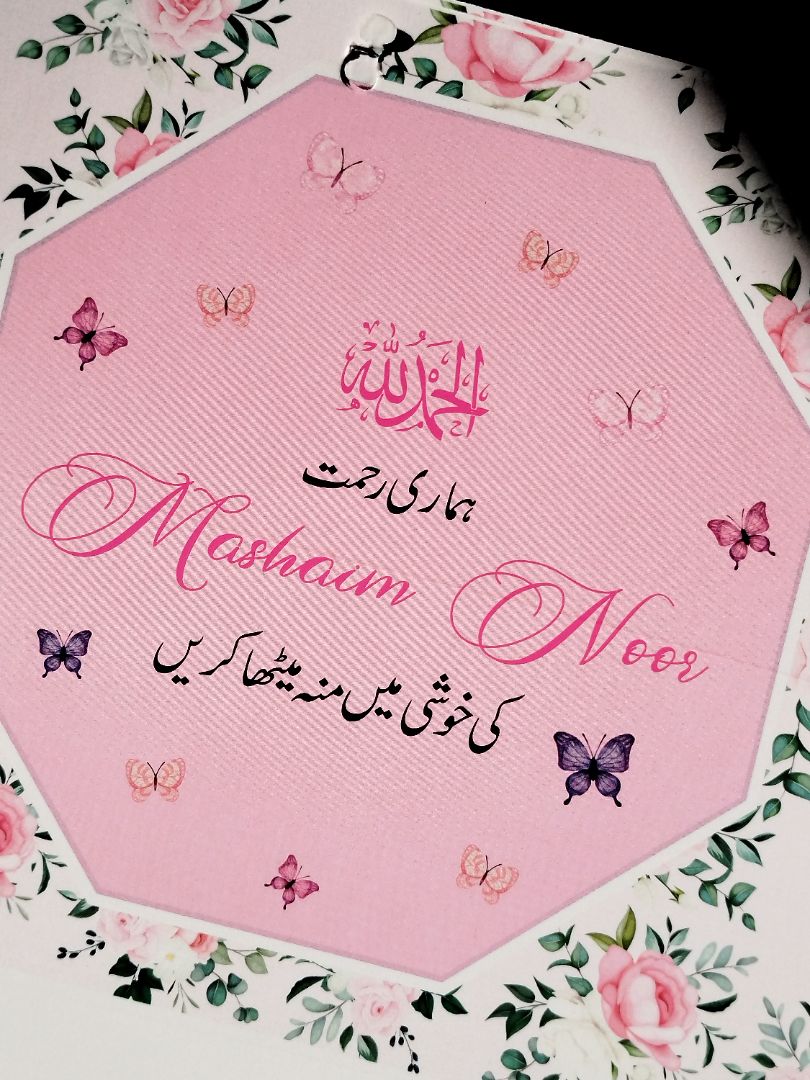 الحمدلله
ہماری رحمت
Mashaim Noor
کی خوشی میں منہ میٹھا کریں